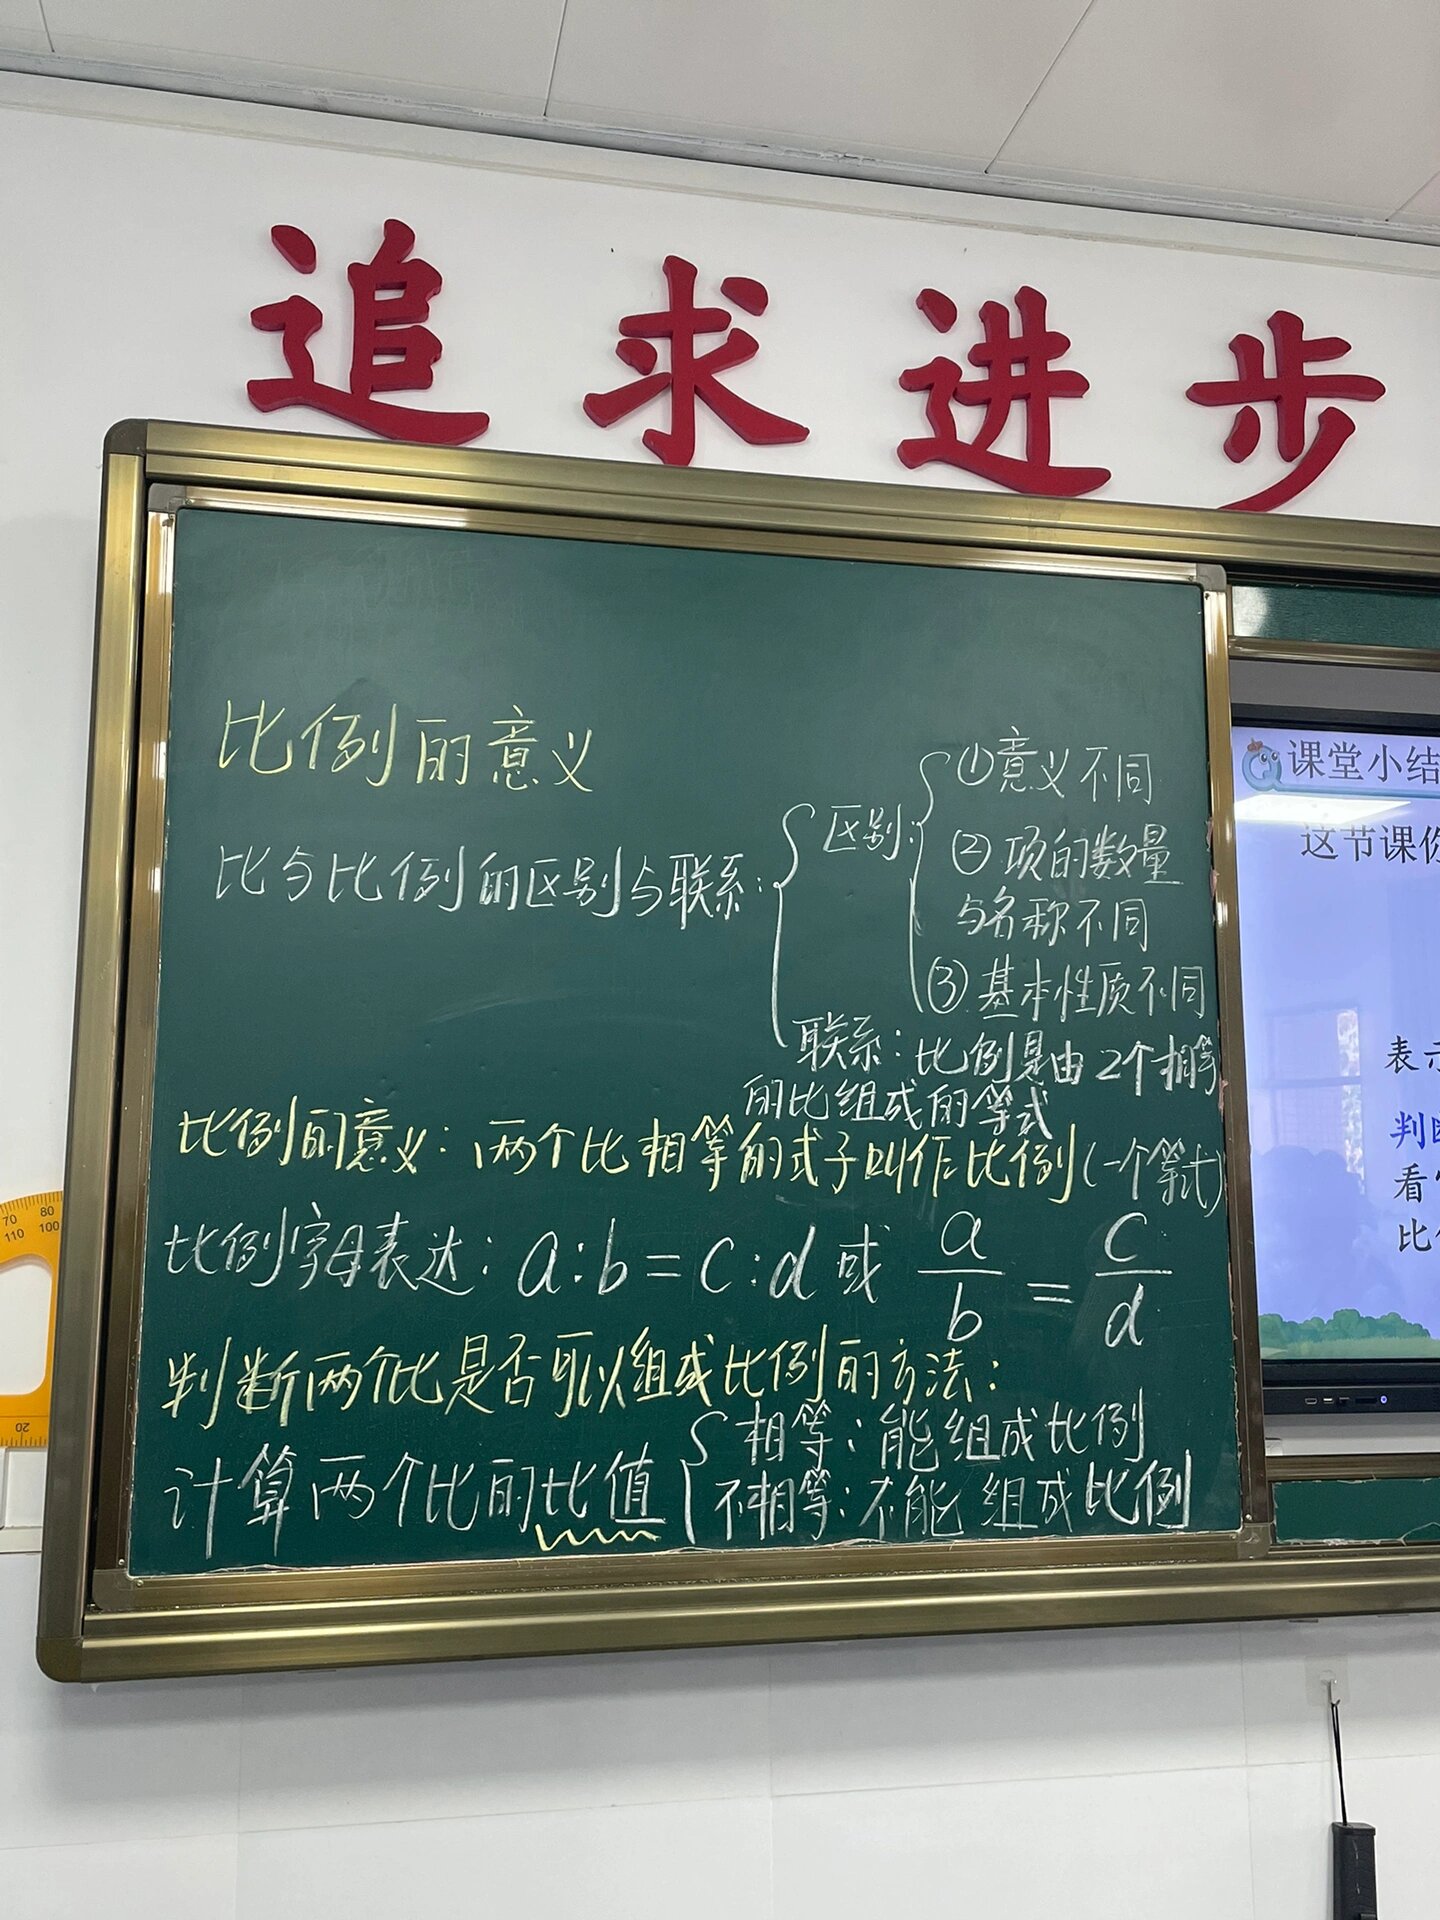 追求进步
比例的意义
比与比例的区别与联系:
区别:
①意义不同
②项的数量
与名称不同
③基本性质不同
联系:比例是由2个相等
的比组成的等式
比例的意义:两个比相等的式子叫作比例(一个等式)
比例字母表达:a:b=c:d或a/b=c/d
判断两个比是否可以组成比例的方法:
计算两个比的比值
相等:能组成比例
不相等:不能组成比例
课堂小结
这节课你
表示
判断
看
比
70 80
110 100
20